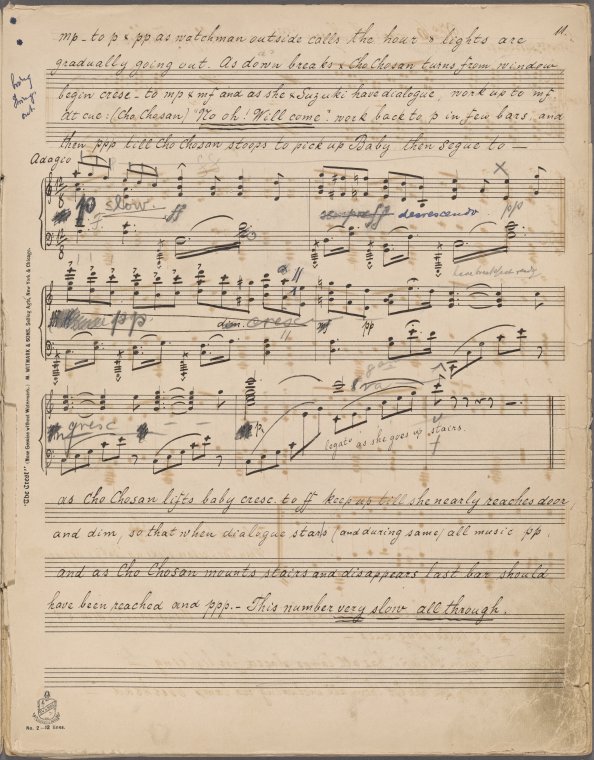 11.
mp - to p & pp as watchman outside calls the hour & lights are
gradually going out. As dawn breaks & Cho Chosan turns from window
begin cresc - to mp & mf and as she & Suzuki have dialogue, work up to mf
at cue: (Cho Chosan) "No oh! Will come" work back to p in few bars, and
then ppp till Cho Chosan stoops to pick up Baby, then segue to —
Adagio
p slow ff
decrescendo pp
pp dim. cresc mf pp
cresc
8va
p legato as she goes up stairs.
as Cho Chosan lifts baby cresc. to ff keep up till she nearly reaches door,
and dim, so that when dialogue starts (and during same) all music pp.
and as Cho Chosan mounts stairs and disappears last bar should
have been reached and ppp. - This number very slow all through.
"The Crest" (None Genuine without Watermark.) M. WITMARK & SONS, Selling Agts, New York & Chicago.
No. 2 — 12 lines.